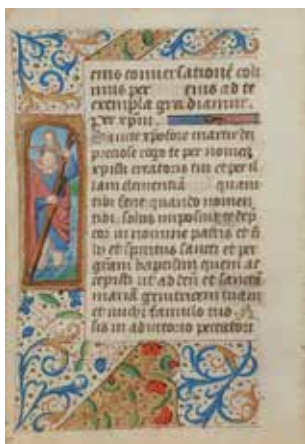 eius conversatione coli
mus per eius ad te
exempla gradiamur.
Per xpm.
Sancte xpofore martir dei
preciose rogo te per nomen
xpisti creatoris tui et per il
lam clementiã quam
tibi
tibi solus imposuit
cor in nomine patris et fi
lij et spiritus sancti et per
grãm baptismi quem ac
cepisti ut ad dẽũ et sanctã
mariã genitricem
et michi famulo tuo
sis in adiutorio peccatori